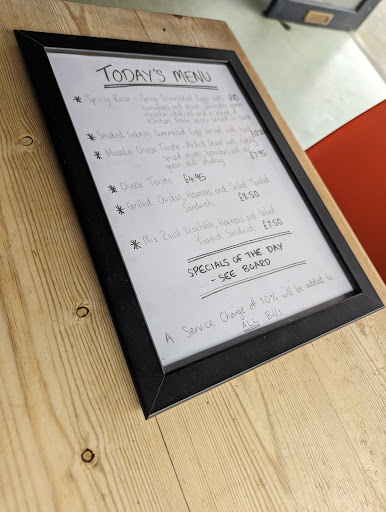 TODAY'S MENU
* Spicy Rosa - Spicy Scrambled Eggs with
tomatoes, red onion, coriander, green
* Smoked Salmon Scrambled Eggs served with toast
* Masala Cheese Toastie, Melted Cheese with
spiced onions, tomatoes and
green chilli chutney £7.95
* Cheese Toastie £4.95
* Grilled Chicken, Houmous and Salad Toasted
Sandwich £8.50
* Mix Roast Vegetable, Houmous and Salad
Toasted Sandwich £7.50
SPECIALS OF THE DAY
- SEE BOARD
A Service Charge of 10% will be added to
ALL Bills